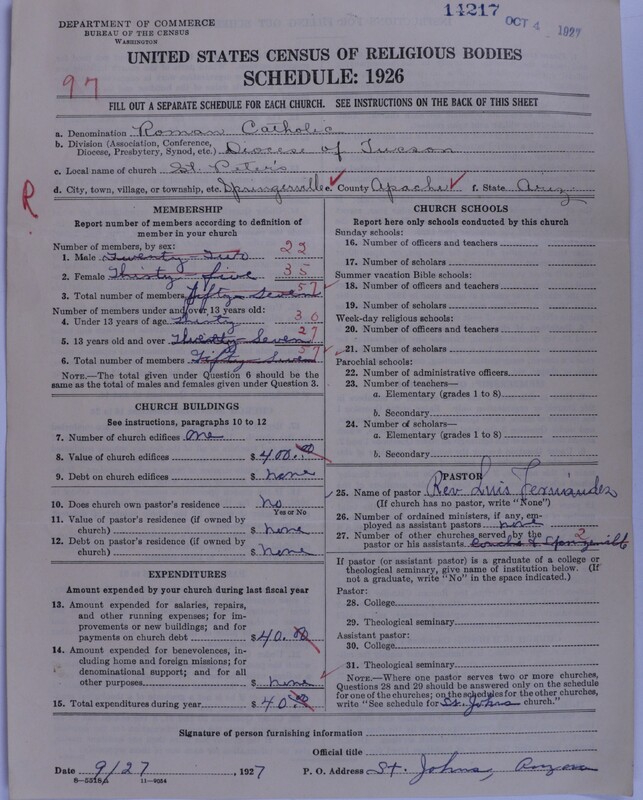 14217
OCT 4 1927
DEPARTMENT OF COMMERCE
BUREAU OF THE CENSUS
WASHINGTON
UNITED STATES CENSUS OF RELIGIOUS BODIES
SCHEDULE: 1926
97
FILL OUT A SEPARATE SCHEDULE FOR EACH CHURCH. SEE INSTRUCTIONS ON THE BACK OF THIS SHEET
a. Denomination Roman Catholic
b. Division (Association, Conference,
Diocese, Presbytery, Synod, etc.) Diocese of Tucson
c. Local name of church St. Peter's
R
d. City, town, village, or township, etc. Springerville e. County Apache f. State Ariz
MEMBERSHIP
Report number of members according to definition of
member in your church
Number of members, by sex:
1. Male Twenty-Two 22
2. Female Thirty-five 35
3. Total number of members Fifty Seven 57
Number of members under and over 13 years old:
4. Under 13 years of age Thirty 30
5. 13 years old and over Twenty Seven 27
6. Total number of members Fifty Seven 57
NOTE.—The total given under Question 6 should be
the same as the total of males and females given under Question 3.
CHURCH BUILDINGS
See instructions, paragraphs 10 to 12
7. Number of church edifices One
8. Value of church edifices $ 400.00
9. Debt on church edifices $ none
10. Does church own pastor's residence No
Yes or No
11. Value of pastor's residence (if owned by
church) $ none
12. Debt on pastor's residence (if owned by
church) $ none
EXPENDITURES
Amount expended by your church during last fiscal year
13. Amount expended for salaries, repairs,
and other running expenses; for im-
provements or new buildings; and for
payments on church debt $ 40.00
14. Amount expended for benevolences, in-
cluding home and foreign missions; for
denominational support; and for all
other purposes $ none
15. Total expenditures during year $ 40.00
CHURCH SCHOOLS
Report here only schools conducted by this church
Sunday schools:
16. Number of officers and teachers
17. Number of scholars
Summer vacation Bible schools:
18. Number of officers and teachers
19. Number of scholars
Week-day religious schools:
20. Number of officers and teachers
21. Number of scholars
Parochial schools:
22. Number of administrative officers
23. Number of teachers—
a. Elementary (grades 1 to 8)
b. Secondary
24. Number of scholars—
a. Elementary (grades 1 to 8)
b. Secondary
PASTOR
25. Name of pastor Rev. Luis Fernandez
(If church has no pastor, write "None")
26. Number of ordained ministers, if any, em-
ployed as assistant pastors none
27. Number of other churches served by the 2
pastor or his assistants Concho & Springerville
If pastor (or assistant pastor) is a graduate of a college or
theological seminary, give name of institution below. (If
not a graduate, write "No" in the space indicated.)
Pastor:
28. College
29. Theological seminary
Assistant pastor:
30. College
31. Theological seminary
NOTE.—Where one pastor serves two or more churches,
Questions 28 and 29 should be answered only on the schedule
for one of the churches; on the schedules for the other churches,
write "See schedule for St. Johns church."
Signature of person furnishing information
Official title
Date 9/27, 1927 P. O. Address St. Johns, Arizona
8—5318a 11—9264